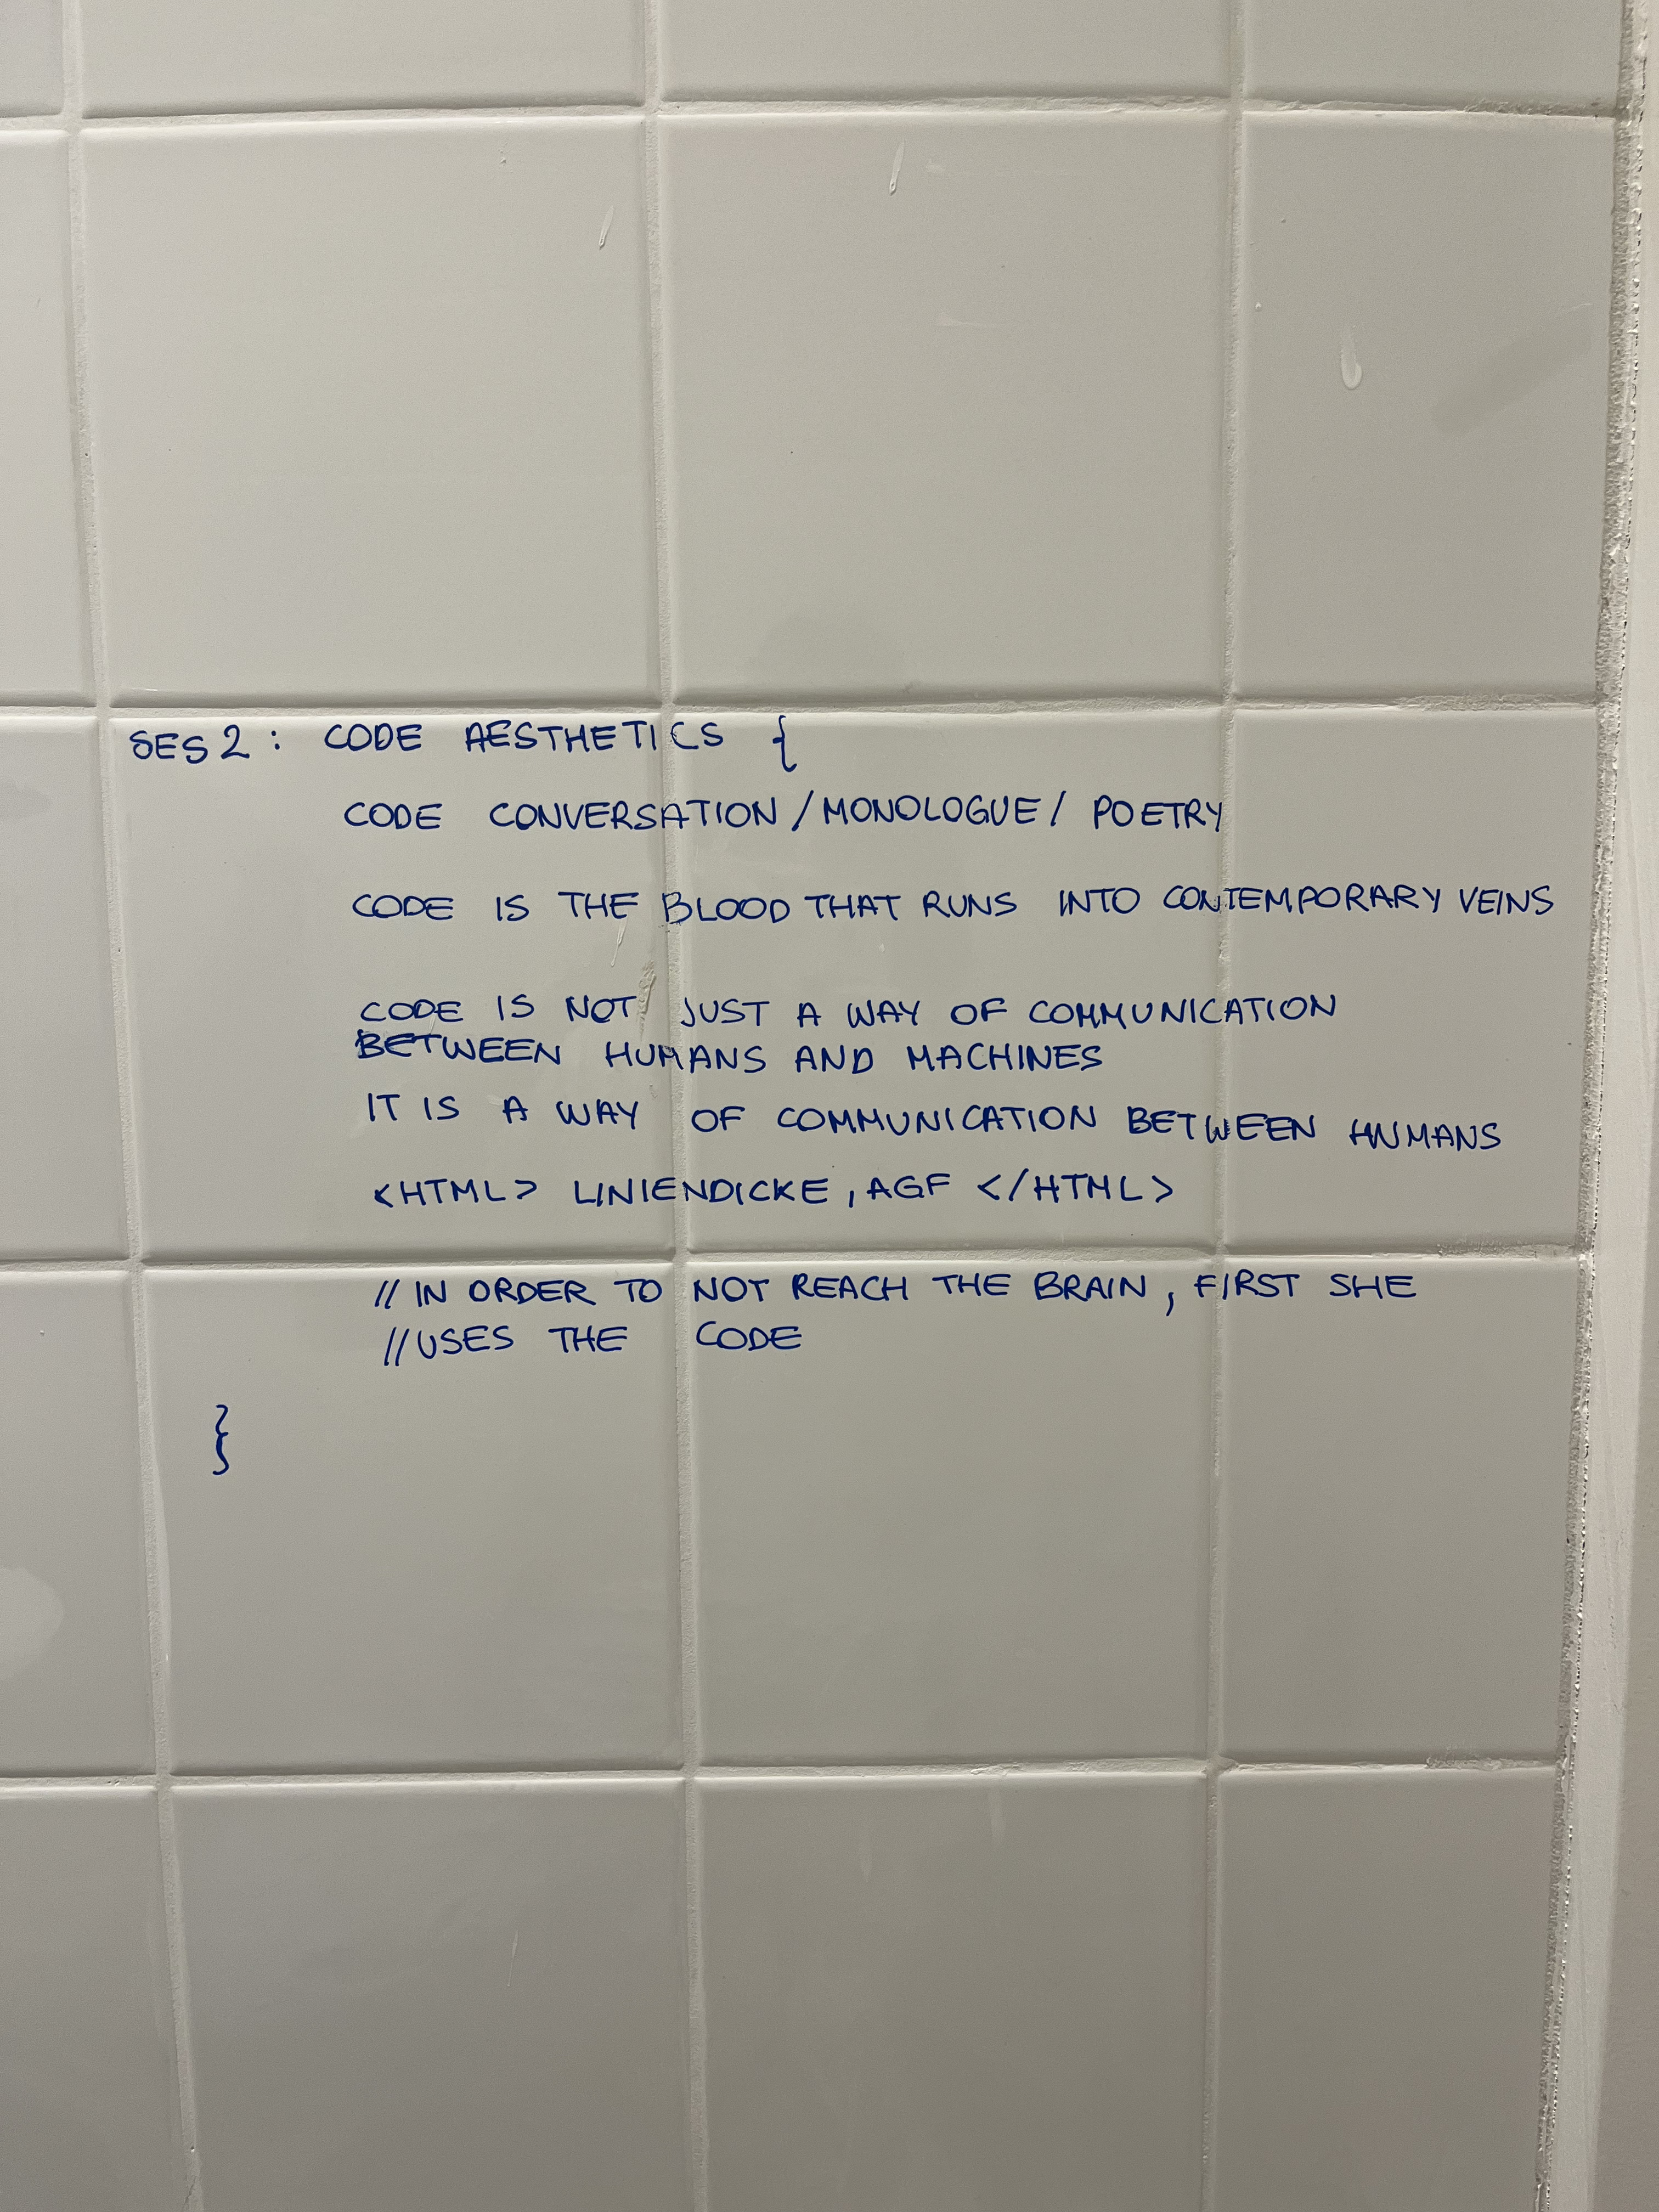 SES2: CODE AESTHETICS {
CODE CONVERSATION/MONOLOGUE/ POETRY
CODE IS THE BLOOD THAT RUNS INTO CONTEMPORARY VEINS
CODE IS NOT JUST A WAY OF COMMUNICATION
BETWEEN HUMANS AND MACHINES
IT IS A WAY OF COMMUNICATION BETWEEN HUMANS
<HTML> LINIENDICKE, AGF </HTML>
// IN ORDER TO NOT REACH THE BRAIN, FIRST SHE
//USES THE CODE
}